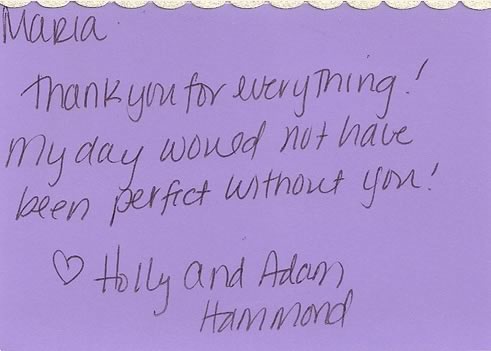 Maria
Thank you for everything!
My day would not have
been perfect without you!
♡ Holly and Adam
Hammond